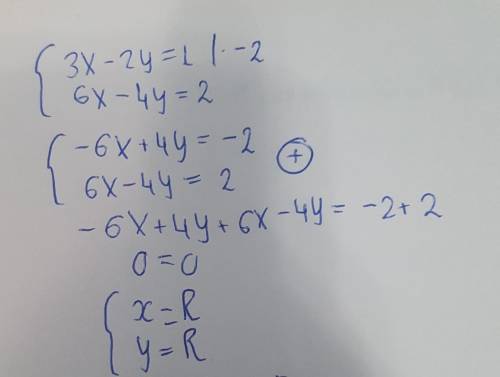 3x-2y=1 |·-2
6x-4y=2
-6x+4y=-2
6x-4y=2 +
-6x+4y+6x-4y=-2+2
0=0
x=R
y=R